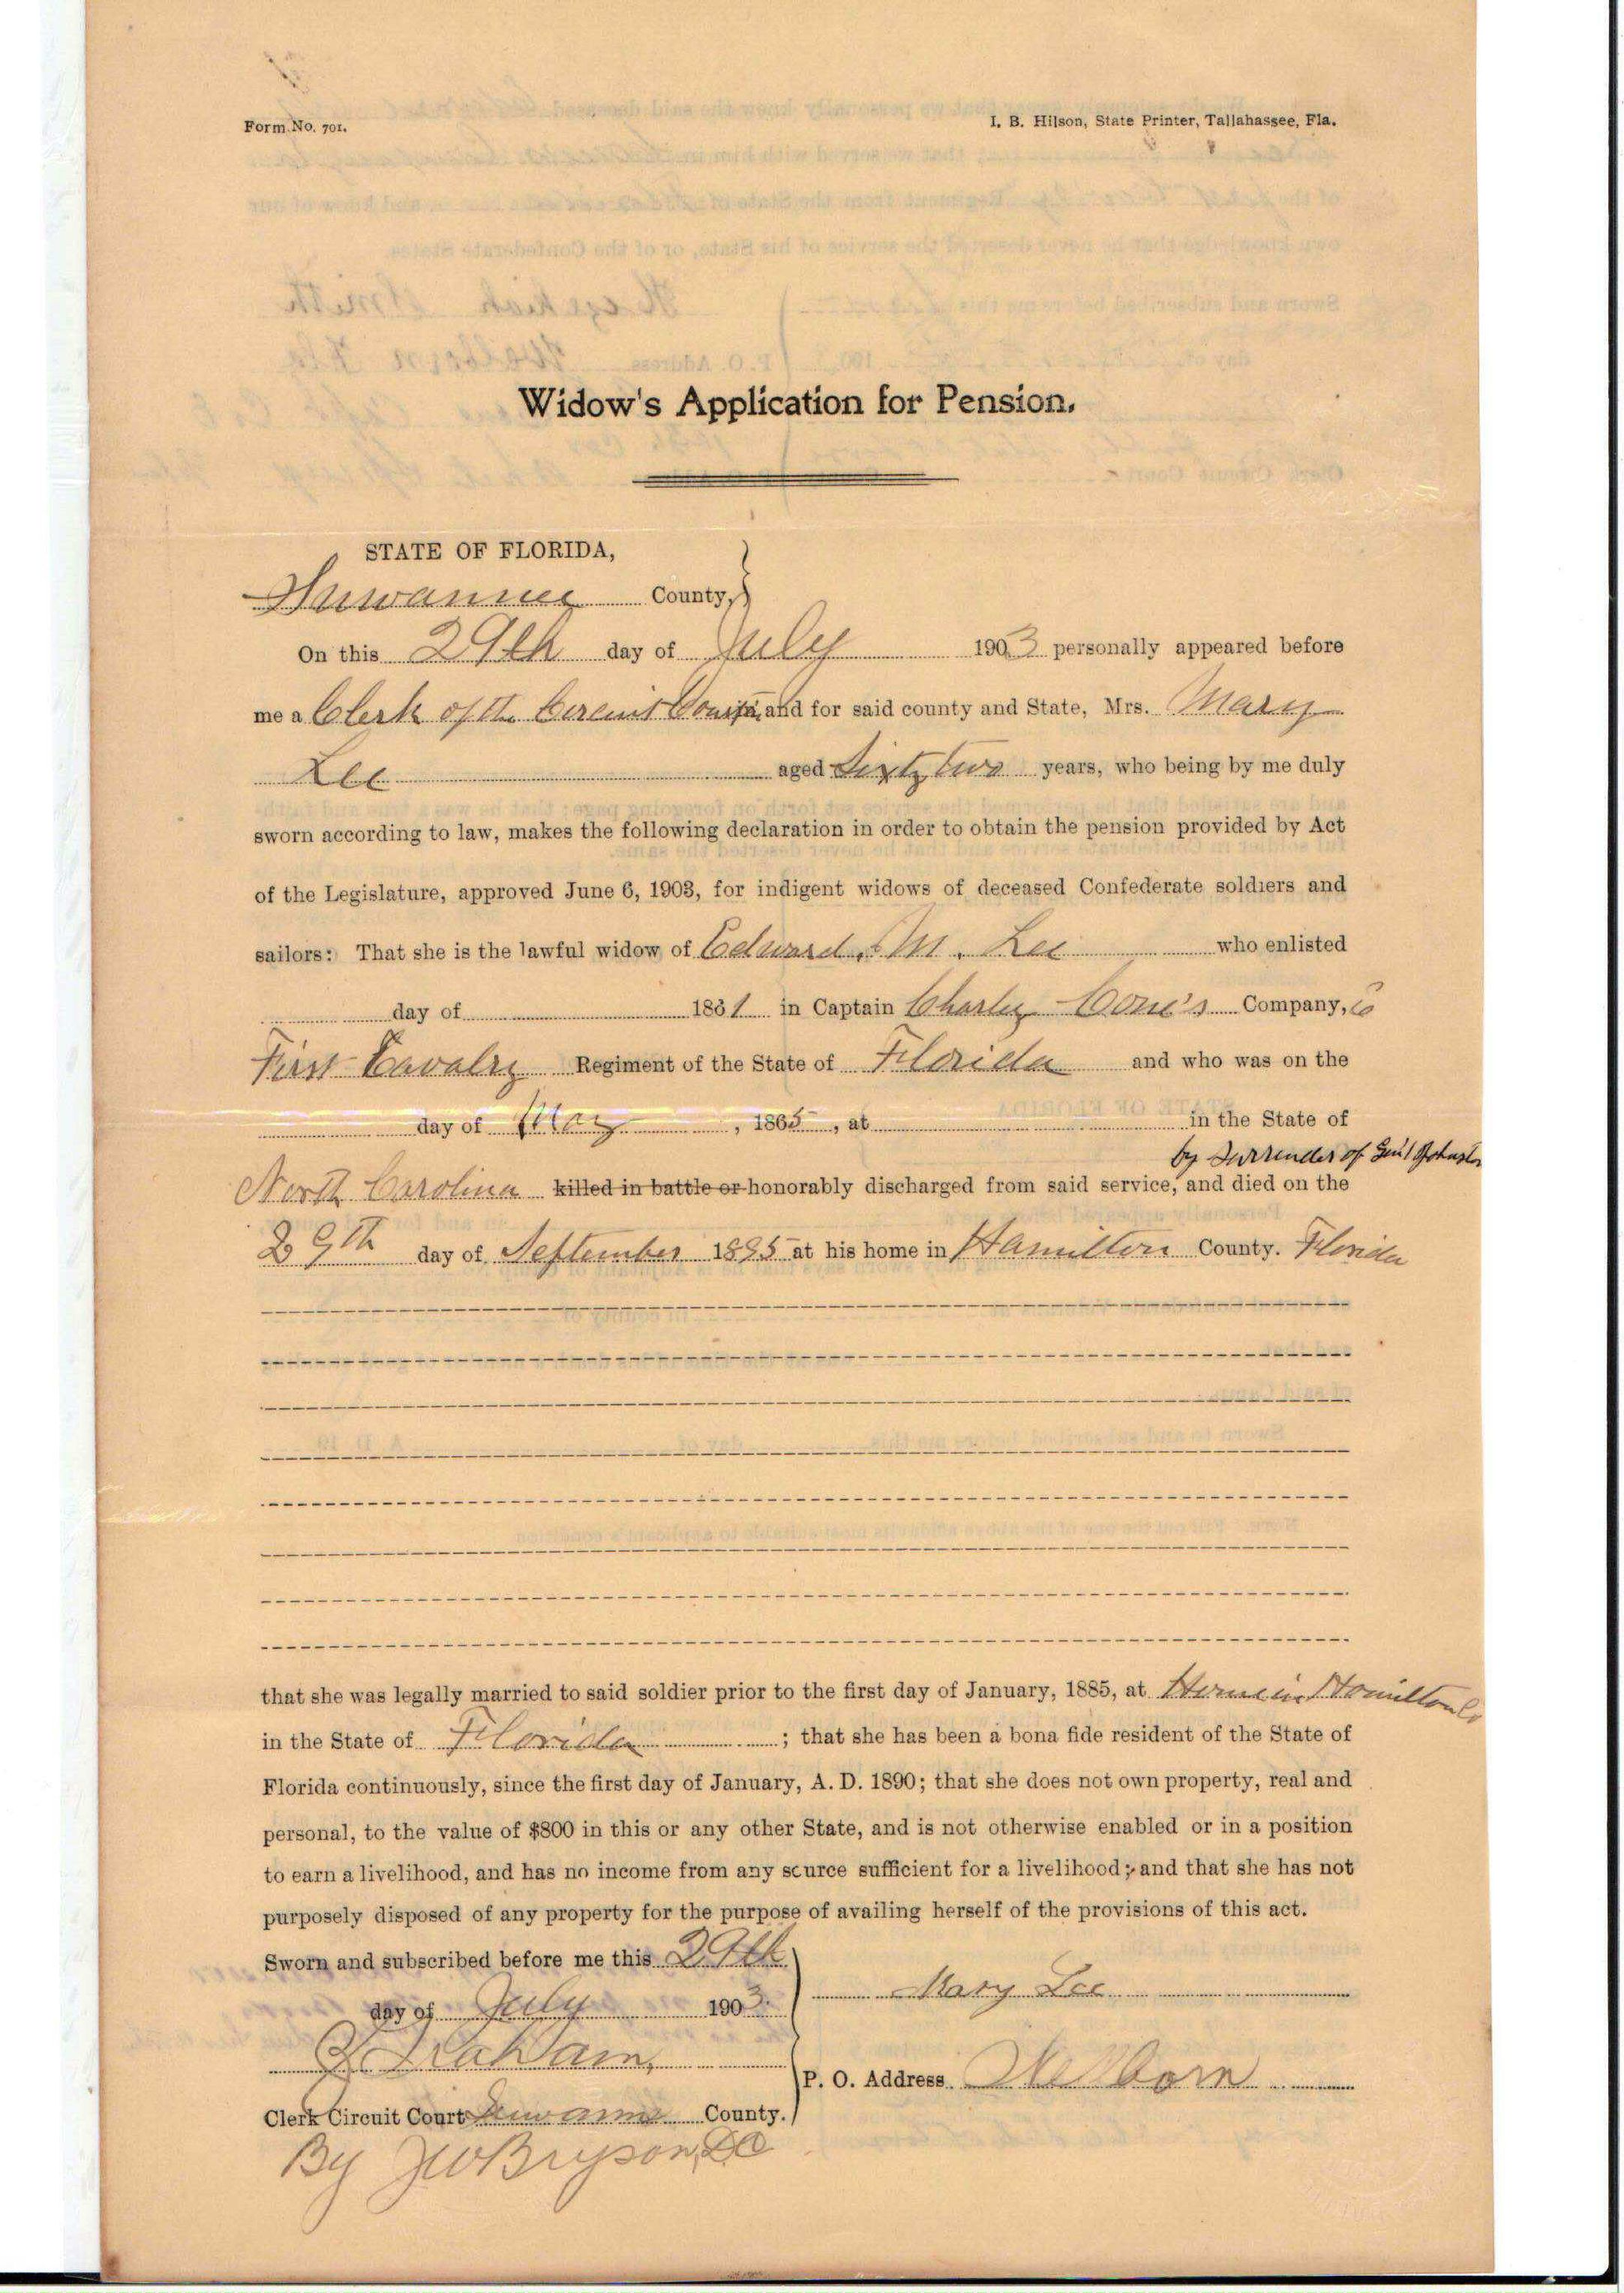 Form No. 701.
I. B. Hilson, State Printer, Tallahassee, Fla.
Widow's Application for Pension.
STATE OF FLORIDA,
Suwannee County,
On this 29th day of July 1903 personally appeared before
me a Clerk of the Circuit Court in and for said county and State, Mrs. Mary
Lee aged Sixty two years, who being by me duly
sworn according to law, makes the following declaration in order to obtain the pension provided by Act
of the Legislature, approved June 6, 1903, for indigent widows of deceased Confederate soldiers and
sailors: That she is the lawful widow of Edward. M. Lee who enlisted
day of 1861 in Captain Charley Cone's Company,
First Cavalry Regiment of the State of Florida and who was on the
day of May, 1865, at in the State of
by Surrender of Gen'l Johnston
North Carolina killed in battle or honorably discharged from said service, and died on the
29th day of September 1895 at his home in Hamilton County. Florida
that she was legally married to said soldier prior to the first day of January, 1885, at Home in Hamilton Co
in the State of Florida; that she has been a bona fide resident of the State of
Florida continuously, since the first day of January, A. D. 1890; that she does not own property, real and
personal, to the value of $800 in this or any other State, and is not otherwise enabled or in a position
to earn a livelihood, and has no income from any scurce sufficient for a livelihood; and that she has not
purposely disposed of any property for the purpose of availing herself of the provisions of this act.
Sworn and subscribed before me this 29th
day of July 1903.
Mary Lee
P. O. Address Welborn
Clerk Circuit Court Suwannee County.
By JW Bryson, DC